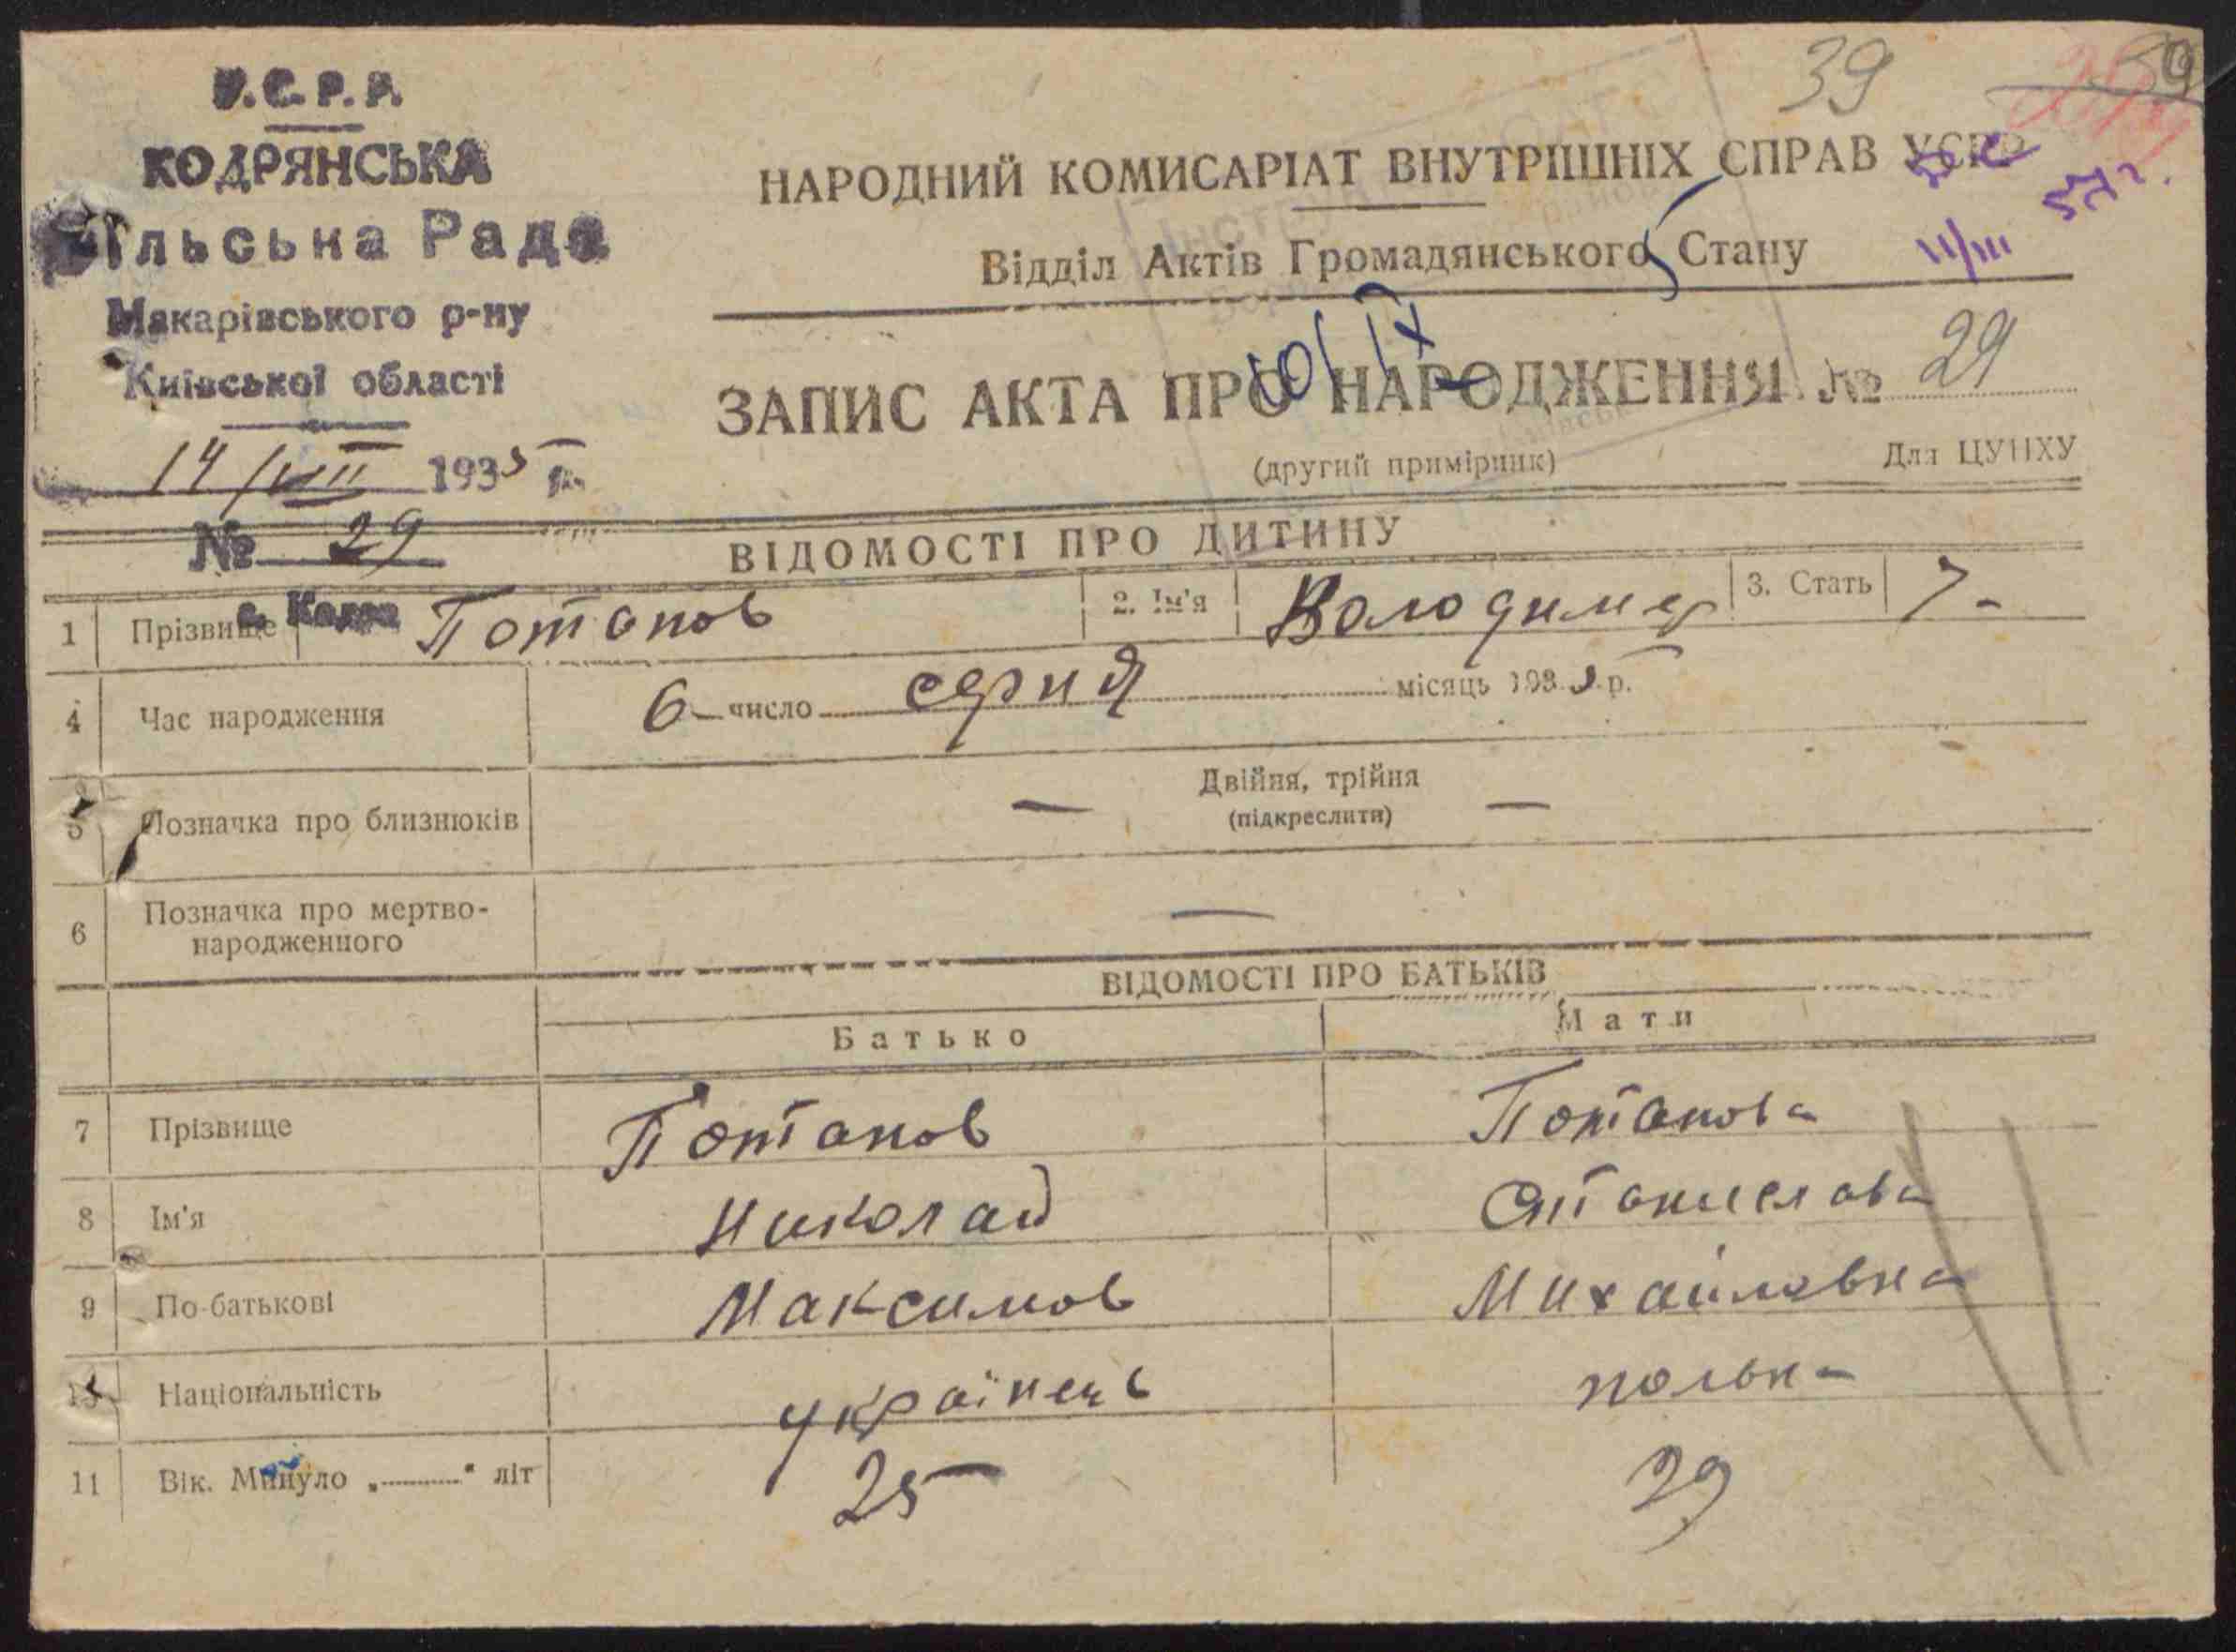 У.С.Р.Р.
КОДРЯНСЬКА
Сільська Рада
Макарівського р-ну
Київської області
14/VIII 1935 р.
№ 29
с. Кодра
39
НАРОДНИЙ КОМИСАРІАТ ВНУТРІШНІХ СПРАВ УСРР
Відділ Актів Громадянського Стану
10/IX
ЗАПИС АКТА ПРО НАРОДЖЕННЯ № 29
(другий примірник) Для ЦУНХУ
ВІДОМОСТІ ПРО ДИТИНУ
1 Прізвище Потапов 2. Ім'я Володимер 3. Стать
4 Час народження 6 число серпня місяць 1935 р.
5 Позначка про близнюків — Двійня, трійня —
(підкреслити)
6 Позначка про мертво-
народженного —
ВІДОМОСТІ ПРО БАТЬКІВ
Батько Мати
7 Прізвище Потапов Потапова
8 Ім'я Николай Станислава
9 По-батькові Максимов Михайловна
Національність українець полька
11 Вік. Минуло „..........“ літ 25 29